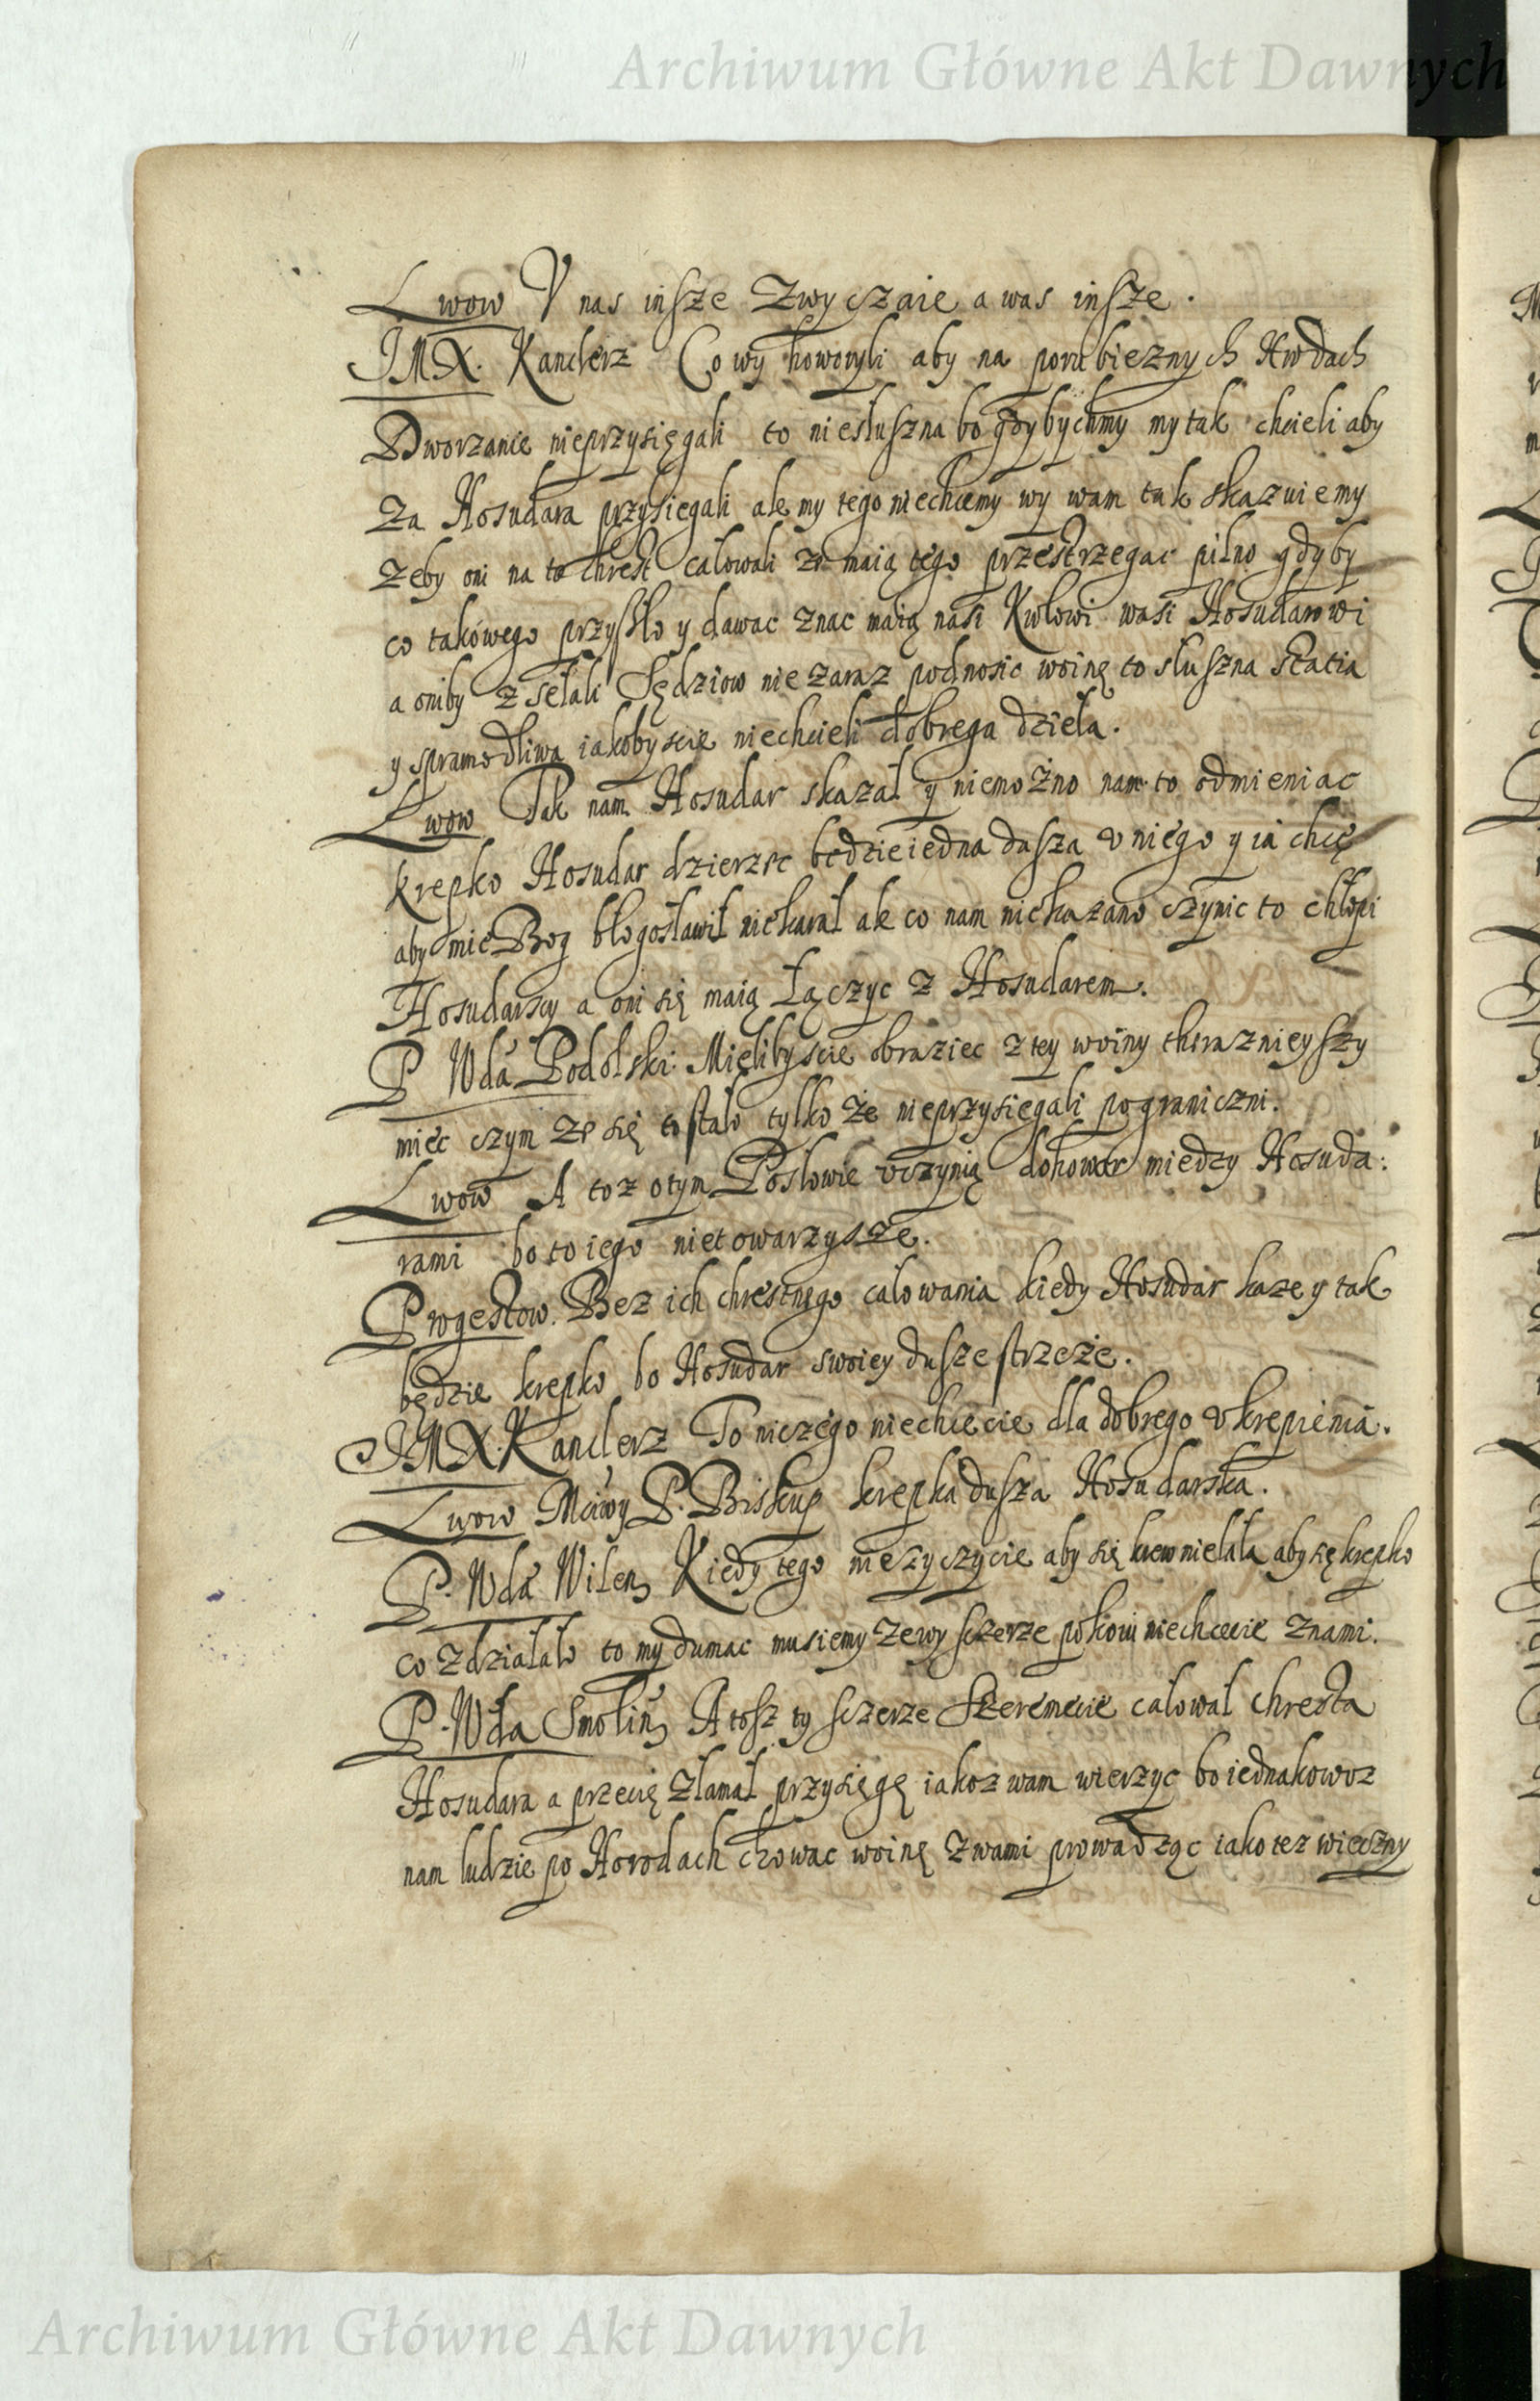 Archiwum Główne Akt Dawnych
Lwow V nas insze Zwyczaie a was insze.
JMX. Kanclerz Co wy howoryli aby na porubieznych Hrodach
Dworzanie nieprzysięgali to niesłuszna bo gdybychmy my tak chcieli aby
Za Hosudara przysięgali ale my tego niechcemy wy wam tak skazuiemy
Zeby oni na to chrest całowali ze maią tego przestrzegac pilno gdyby
co takowego przyszło y dawac znac maią nasi Krolowi wasi Hosudarowi
a oniby zsełali Sędziow nie zaraz podnosic woinę to słuszna statia
y sprawedliwa iakobyscie niechcieli dobrega dzieła.
Lwow Tak nam Hosudar skazał y niemożno nam to odmieniac
krepko Hosudar dzierzec bedzie iedna dusza v niego y ia chcę
aby mie Bog błogosławił niekarał ale co nam niekazano czynic to chłopi
Hosudarscy a oni się maią Łączyc z Hosudarem.
P Wda Podolski. Mielibyscie obraziec z tey woiny theraznieyszy
miec czym ze się to stało tylko że nieprzysiegali pograniczni.
Lwow A toz o tym Posłowie vczynią dohowor miedzy Hosuda:
rami bo to iego nietowarzysze.
P Bez ich chrestnego całowania kiedy Hosudar kaze y tak
będzie krepko bo Hosudar swoiey dusze strzeże.
JMX. Kanclerz To niczego niechcecie dla dobrego vkrepienia.
Lwow Mciwy P. Biskup krepka dusza Hosudarska.
P. Wda Wilen Kiedy tego nieszyczycie aby się krew nielała aby sę krepko
co zdziałało to my dumac musiemy Ze wy sczerze pokoiu niechcecie z nami.
P. Wda Smolin A tosz ty sczerze Szeremecie całował chresta
Hosudara a przecię złamał przysięgę iakoz wam wierzyc bo iednakowoz
nam ludzie po Horodach chowac woinę z wami prowadząc iako tez wieczny
Archiwum Główne Akt Dawnych